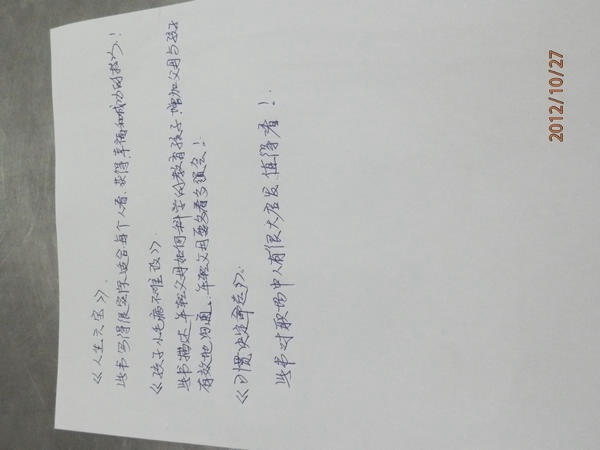 《人生六宝》
此书写得很实际适合每个人看、获得幸福和成功的技巧！
《孩子小毛病不难改》
此书描述年轻父母如何科学的教育孩子，增加父母与孩子
有效地沟通、年轻父母要多看多领会！
《习惯决定命运》
此书对职场中人有很大启发值得看！
2012/10/27